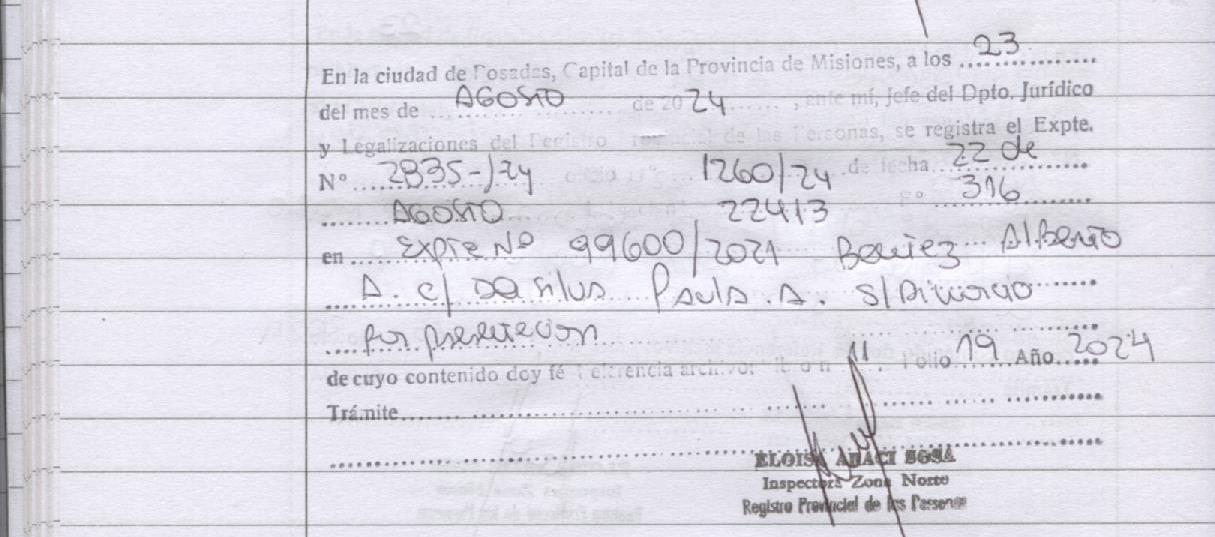 En la ciudad de Posadas, Capital de la Provincia de Misiones, a los 23
del mes de AGOSTO de 2024, ante mí, Jefe del Dpto. Jurídico
y Legalizaciones del Registro Provincial de las Personas, se registra el Expte.
Nº 2835-/24 1260/24 de fecha 22 de
AGOSTO 22413 Fº 316
en Expte Nº 99600/2021 Benitez Alberto
A. c/ Da Silva Paula A. s/ Divorcio
por presentacion
de cuyo contenido doy fé Folio 19 Año 2024
Trámite
ELOISA SOSA
Inspectora Zona Norte
Registro Provincial de las Personas